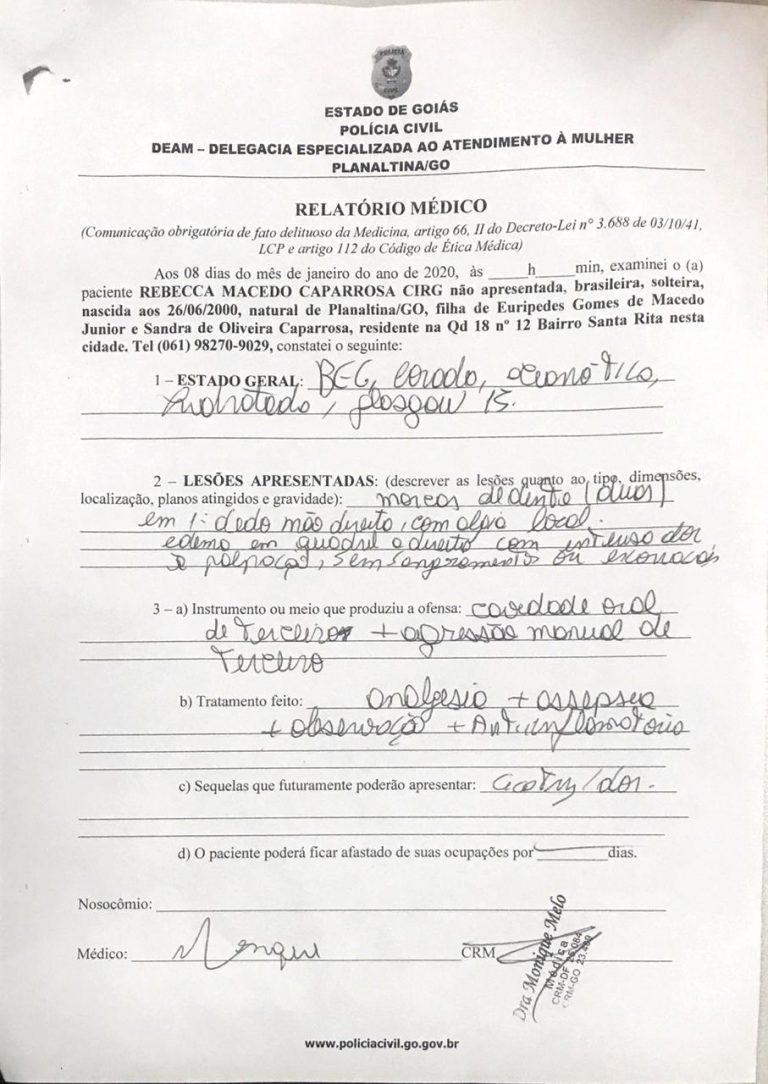 POLÍCIA
CIVIL
ESTADO DE GOIÁS
POLÍCIA CIVIL
DEAM – DELEGACIA ESPECIALIZADA AO ATENDIMENTO À MULHER
PLANALTINA/GO
RELATÓRIO MÉDICO
(Comunicação obrigatória de fato delituoso da Medicina, artigo 66, II do Decreto-Lei nº 3.688 de 03/10/41,
LCP e artigo 112 do Código de Ética Médica)
Aos 08 dias do mês de janeiro do ano de 2020, às _____h_____min, examinei o (a)
paciente REBECCA MACEDO CAPARROSA CIRG não apresentada, brasileira, solteira,
nascida aos 26/06/2000, natural de Planaltina/GO, filha de Euripedes Gomes de Macedo
Junior e Sandra de Oliveira Caparrosa, residente na Qd 18 nº 12 Bairro Santa Rita nesta
cidade. Tel (061) 98270-9029, constatei o seguinte:
1 – ESTADO GERAL: BEG, corada, acianótica,
hidratada, glasgow 15.
2 – LESÕES APRESENTADAS: (descrever as lesões quanto ao tipo, dimensões,
localização, planos atingidos e gravidade): marcas de dente (duas)
em 1º dedo mão direito, com local.
edema em quadril direito com intenso dor
palpação, sem sangramento ou
3 – a) Instrumento ou meio que produziu a ofensa: cavidade oral
de terceiro + agressão manual de
terceiro
b) Tratamento feito: analgesia + assepsia
+ observação + Antiinflamatorio
c) Sequelas que futuramente poderão apresentar: /dor.
d) O paciente poderá ficar afastado de suas ocupações por__________dias.
Nosocômio:
Médico:
CRM
Dra Monique Melo
Médica
CRM-DF
CRM-GO
www.policiacivil.go.gov.br